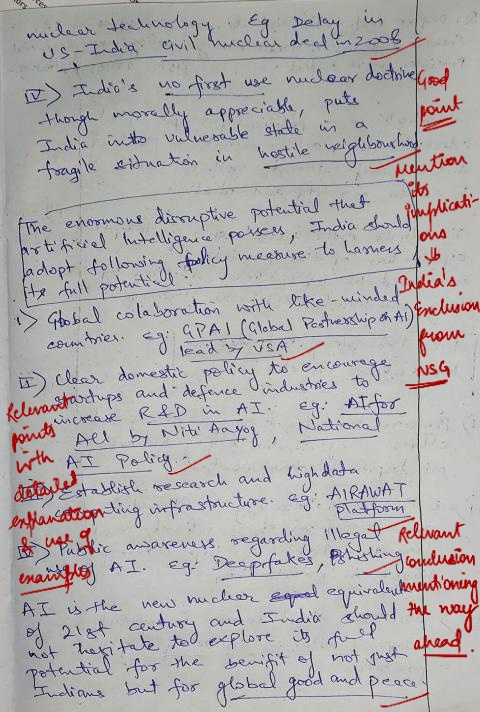 nuclear technology Eg Delay in
US-India civil nuclear deal in 2008
IV) India's no first use nuclear doctrine
though morally appreciable, puts
India into vulnerable state in a
fragile situation in hostile neighbourhood.
Good
point
mention
its
implicati-
ons
India's
Exclusion
from
NSG
The enormous disruptive potential that
artificial Intelligence posses, India should
adopt following policy measure to harness
its full potential:
i) Global colaboration with like-minded
countries. eg: GPAI (Global Partnership on AI)
lead by USA
II) Clear domestic policy to encourage
startups and defence industries to
increase R&D in AI. eg: AI for
All by Niti Aayog, National
AI Policy
Establish research and high data
infrastructure. eg: AIRAWAT
Platform
Public awareness regarding illegal
of AI. eg: Deepfakes, Phishing
Relevant
points
with
detailed
explanation
& use of
examples
AI is the new nuclear equivalent
of 21st century and India should
not hesitate to explore its full
potential for the benifit of not just
Indians but for global good and peace.
Relevant
conclusion
mentioning
the way
ahead.